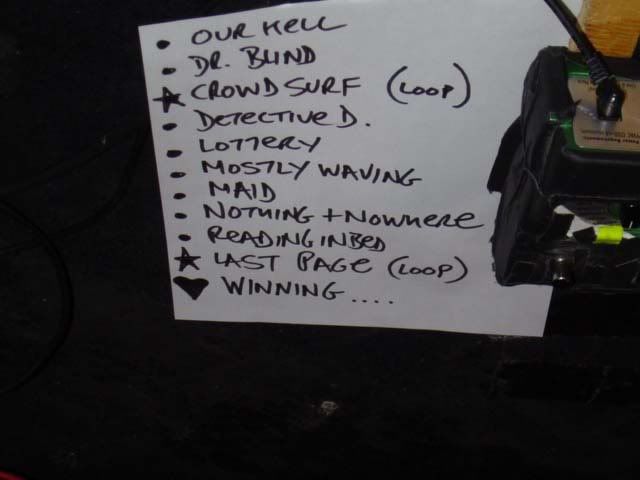 • OUR HELL
• DR. BLIND
★ CROWD SURF (LOOP)
• DETECTIVE D.
• LOTTERY
• MOSTLY WAVING
• MAID
• NOTHING + NOWHERE
• READING IN BED
★ LAST PAGE (LOOP)
♥ WINNING....